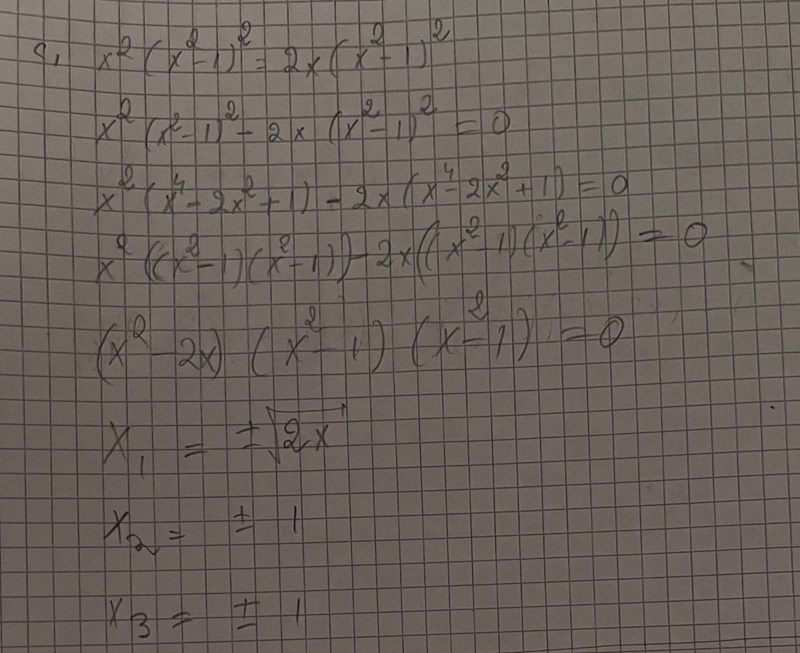 9. x² (x²-1)² = 2x (x²-1)²
x² (x²-1)² - 2x (x²-1)² = 0
x² (x⁴ - 2x² + 1) - 2x (x⁴ - 2x² + 1) = 0
x² ((x²-1)(x²-1)) - 2x ((x²-1)(x²-1)) = 0
(x² - 2x) (x²-1) (x²-1) = 0
x₁ = ±√2x
x₂ = ± 1
x₃ = ± 1